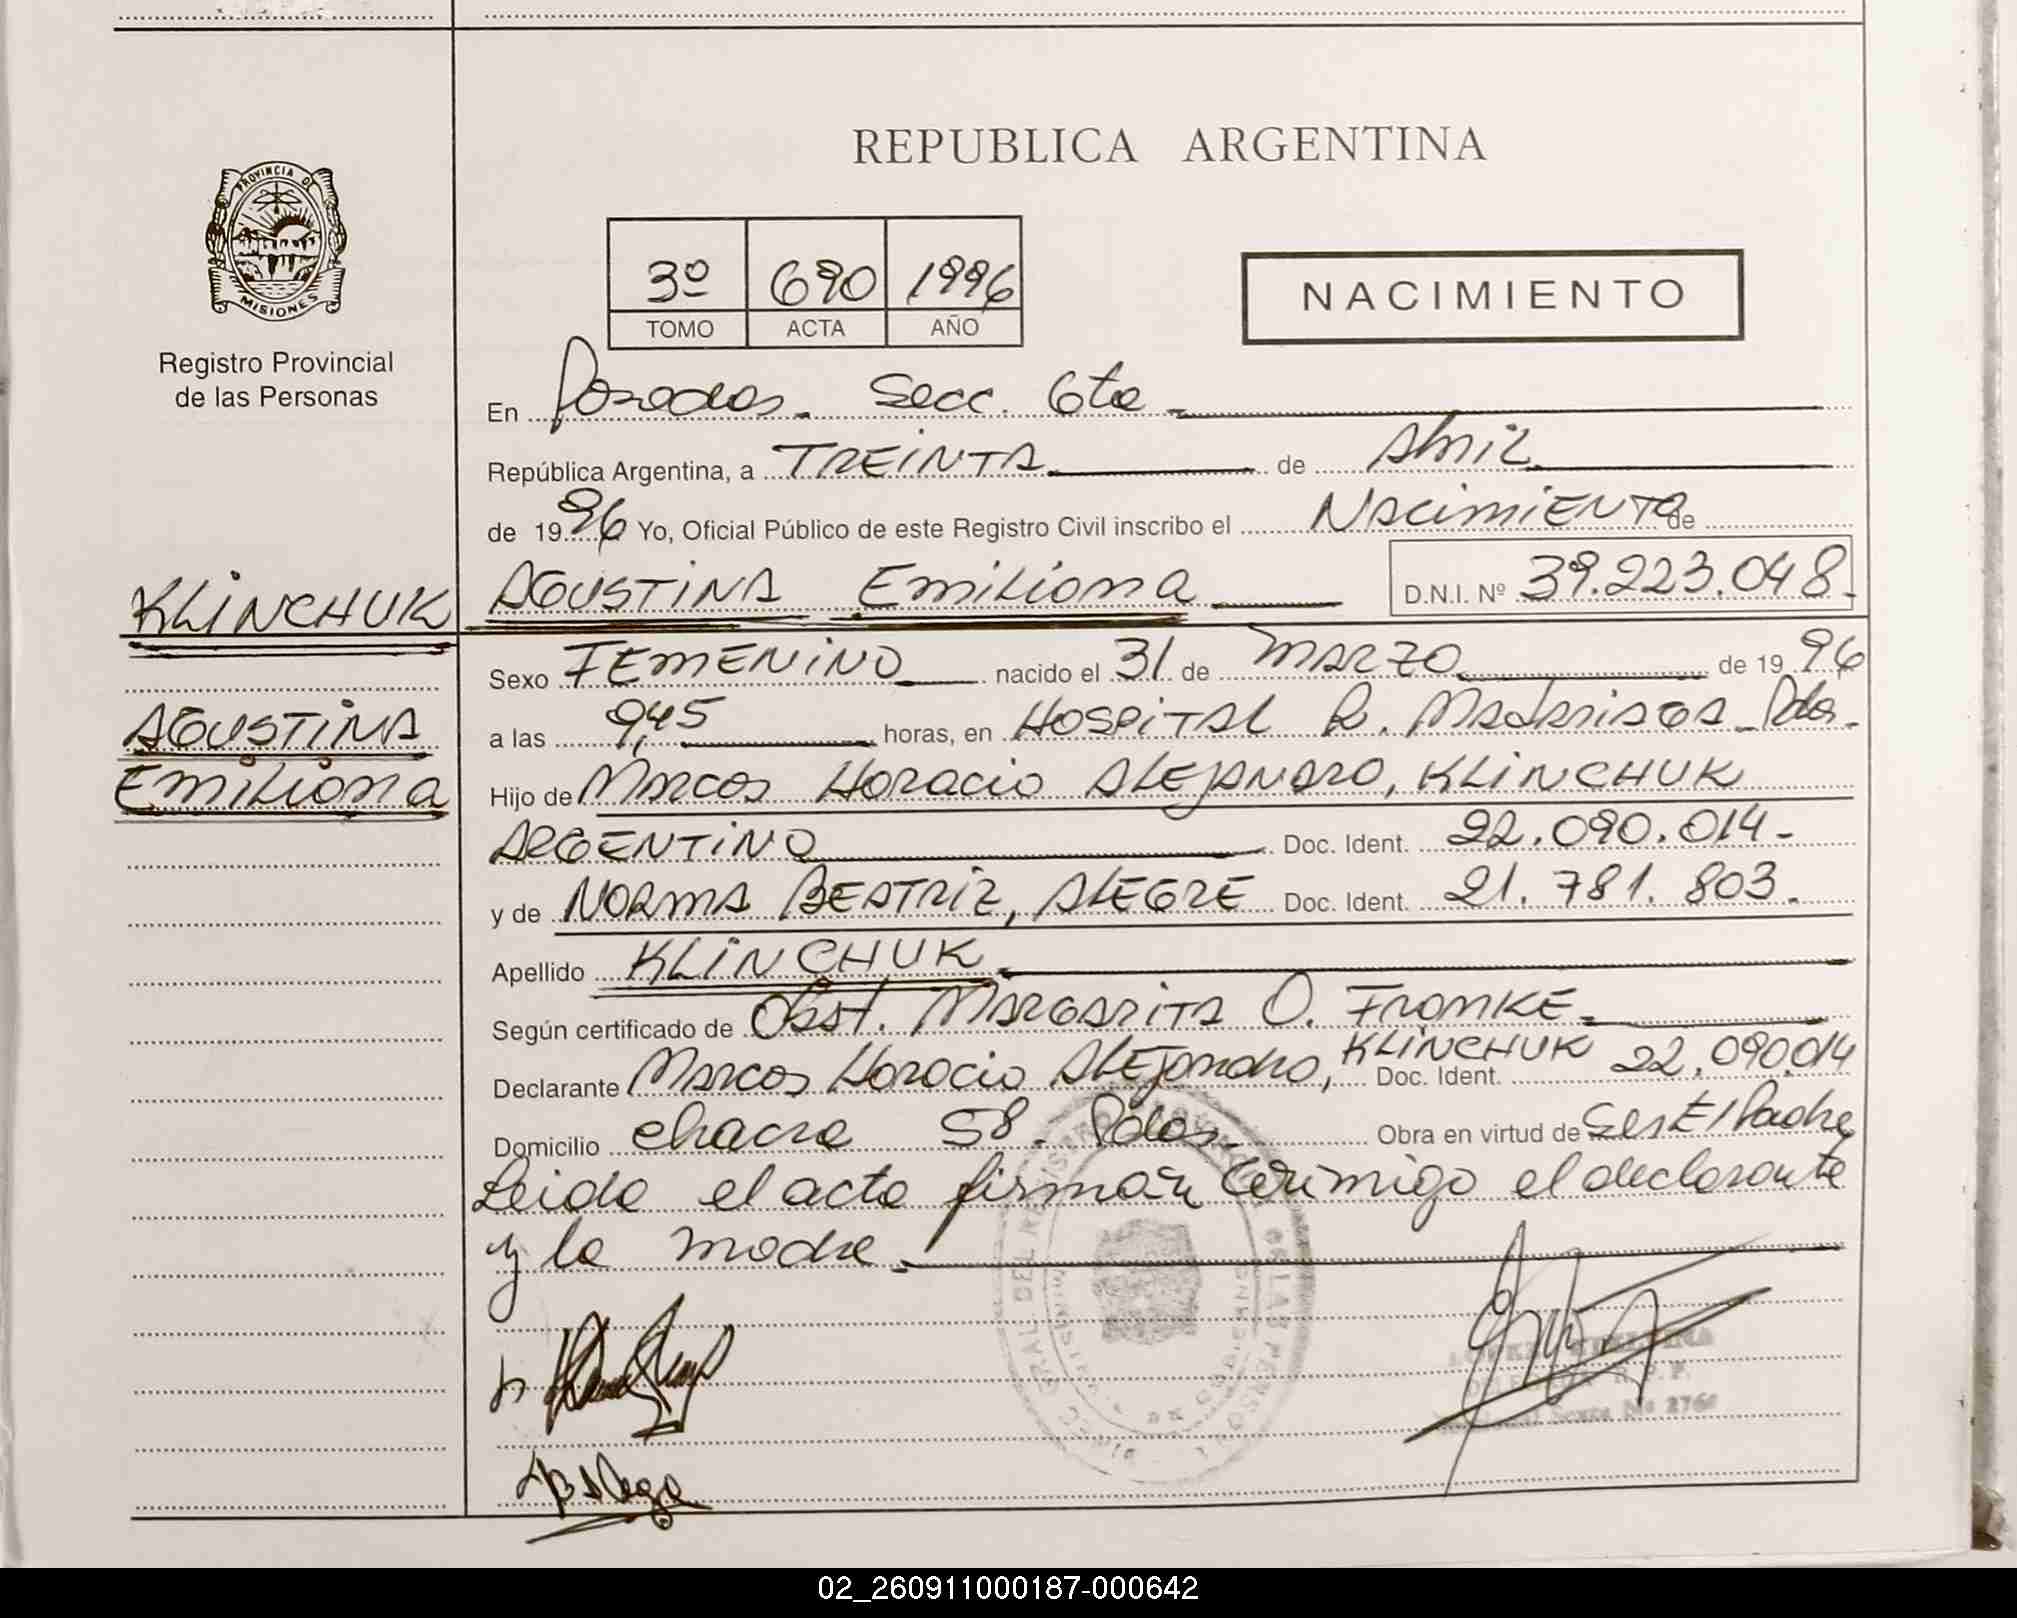 REPUBLICA ARGENTINA
PROVINCIA DE
MISIONES
Registro Provincial
de las Personas
3º 690 1996
TOMO ACTA AÑO
NACIMIENTO
En Posadas. Secc. 6ta
República Argentina, a TREINTA de Abril
de 1996 Yo, Oficial Público de este Registro Civil inscribo el Nacimiento de
KLINCHUK
AGUSTINA Emiliana D.N.I. Nº 39.223.048.
AGUSTINA
Emiliana
Sexo FEMENINO nacido el 31 de MARZO de 1996
a las 9,45 horas, en HOSPITAL R. Madariaga - Pdas.
Hijo de Marcos Horacio ALEJANDRO, KLINCHUK
ARGENTINO Doc. Ident. 22.090.014.-
y de NORMA BEATRIZ, ALEGRE Doc. Ident. 21.781.803.
Apellido KLINCHUK
Según certificado de Obst. MARGARITA O. FROMKE.
Declarante Marcos Horacio ALEJandro, KLINCHUK Doc. Ident. 22.090.014
Domicilio chacra 58. Pdas. Obra en virtud de Ser El Padre
Leida el acta firman conmigo el declarante
y la madre.
02_260911000187-000642